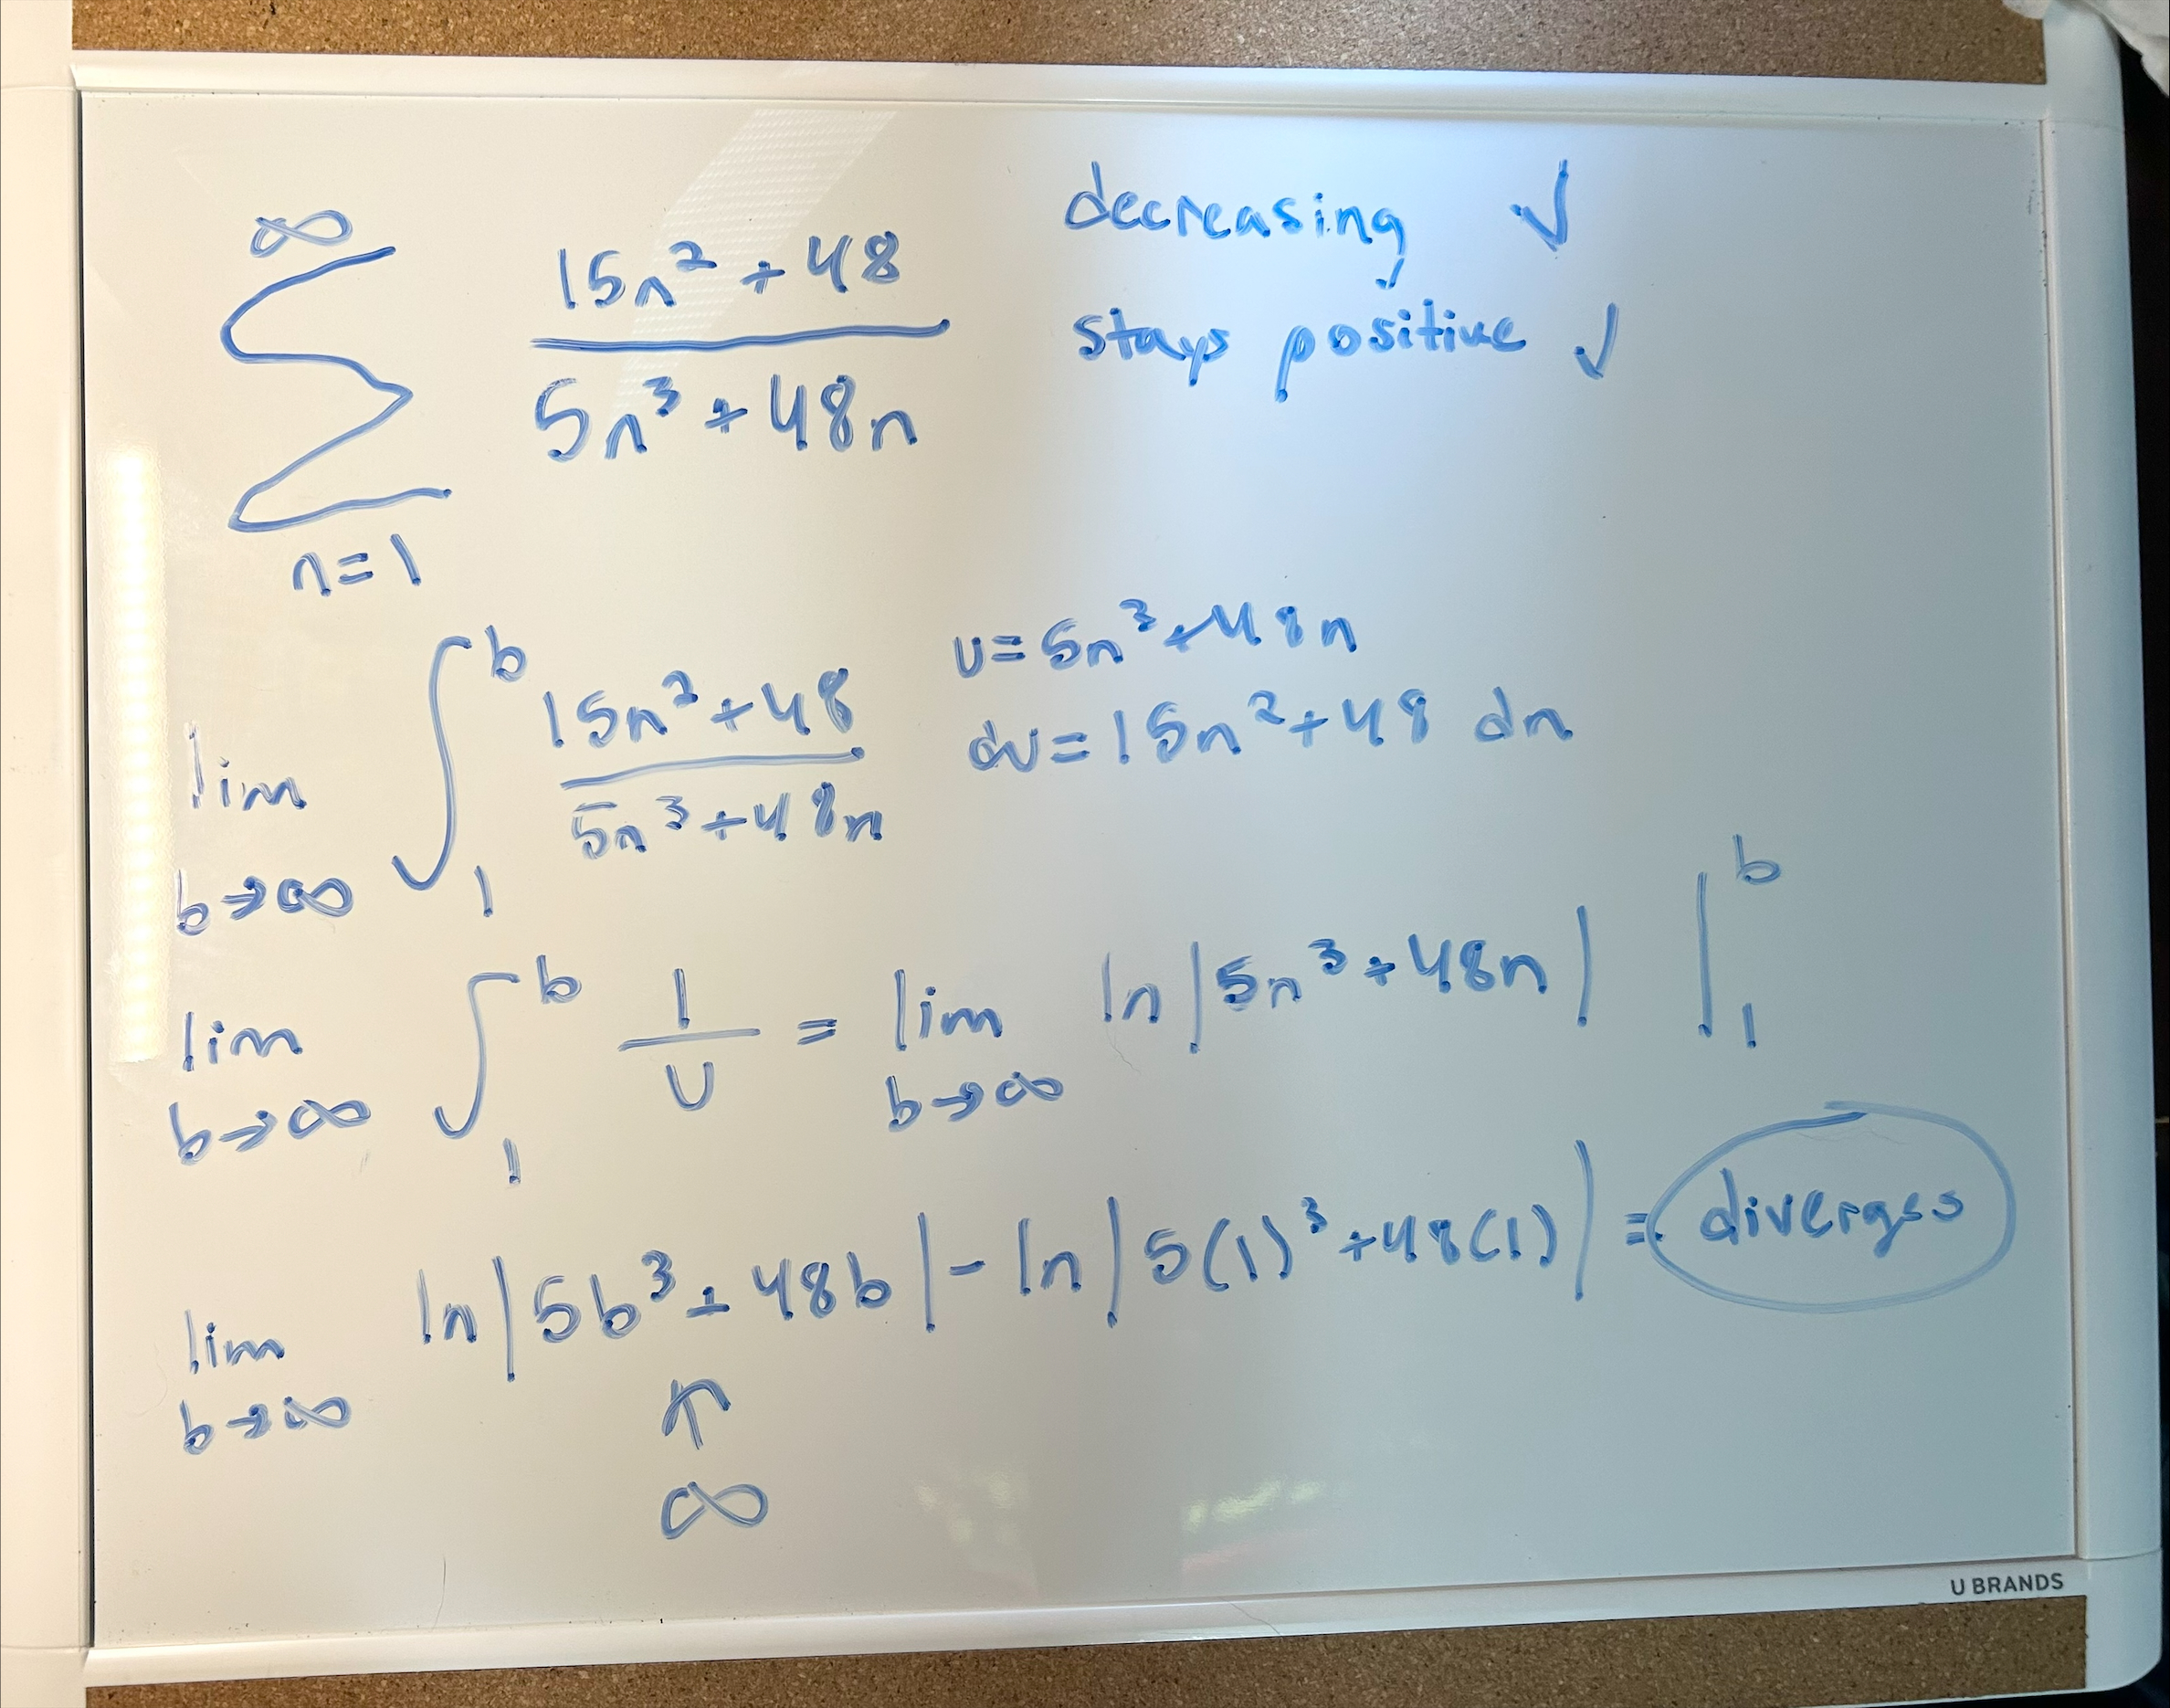 ∞
∑ 15n² + 48 / 5n³ + 48n
n=1
decreasing ✓
stays positive ✓
lim b→∞ ∫₁ᵇ 15n² + 48 / 5n³ + 48n
u = 5n³ + 48n
du = 15n² + 48 dn
lim b→∞ ∫₁ᵇ 1/u = lim b→∞ ln|5n³ + 48n| |₁ᵇ
lim b→∞ ln|5b³ + 48b| - ln|5(1)³ + 48(1)| = diverges
↑
∞
U BRANDS